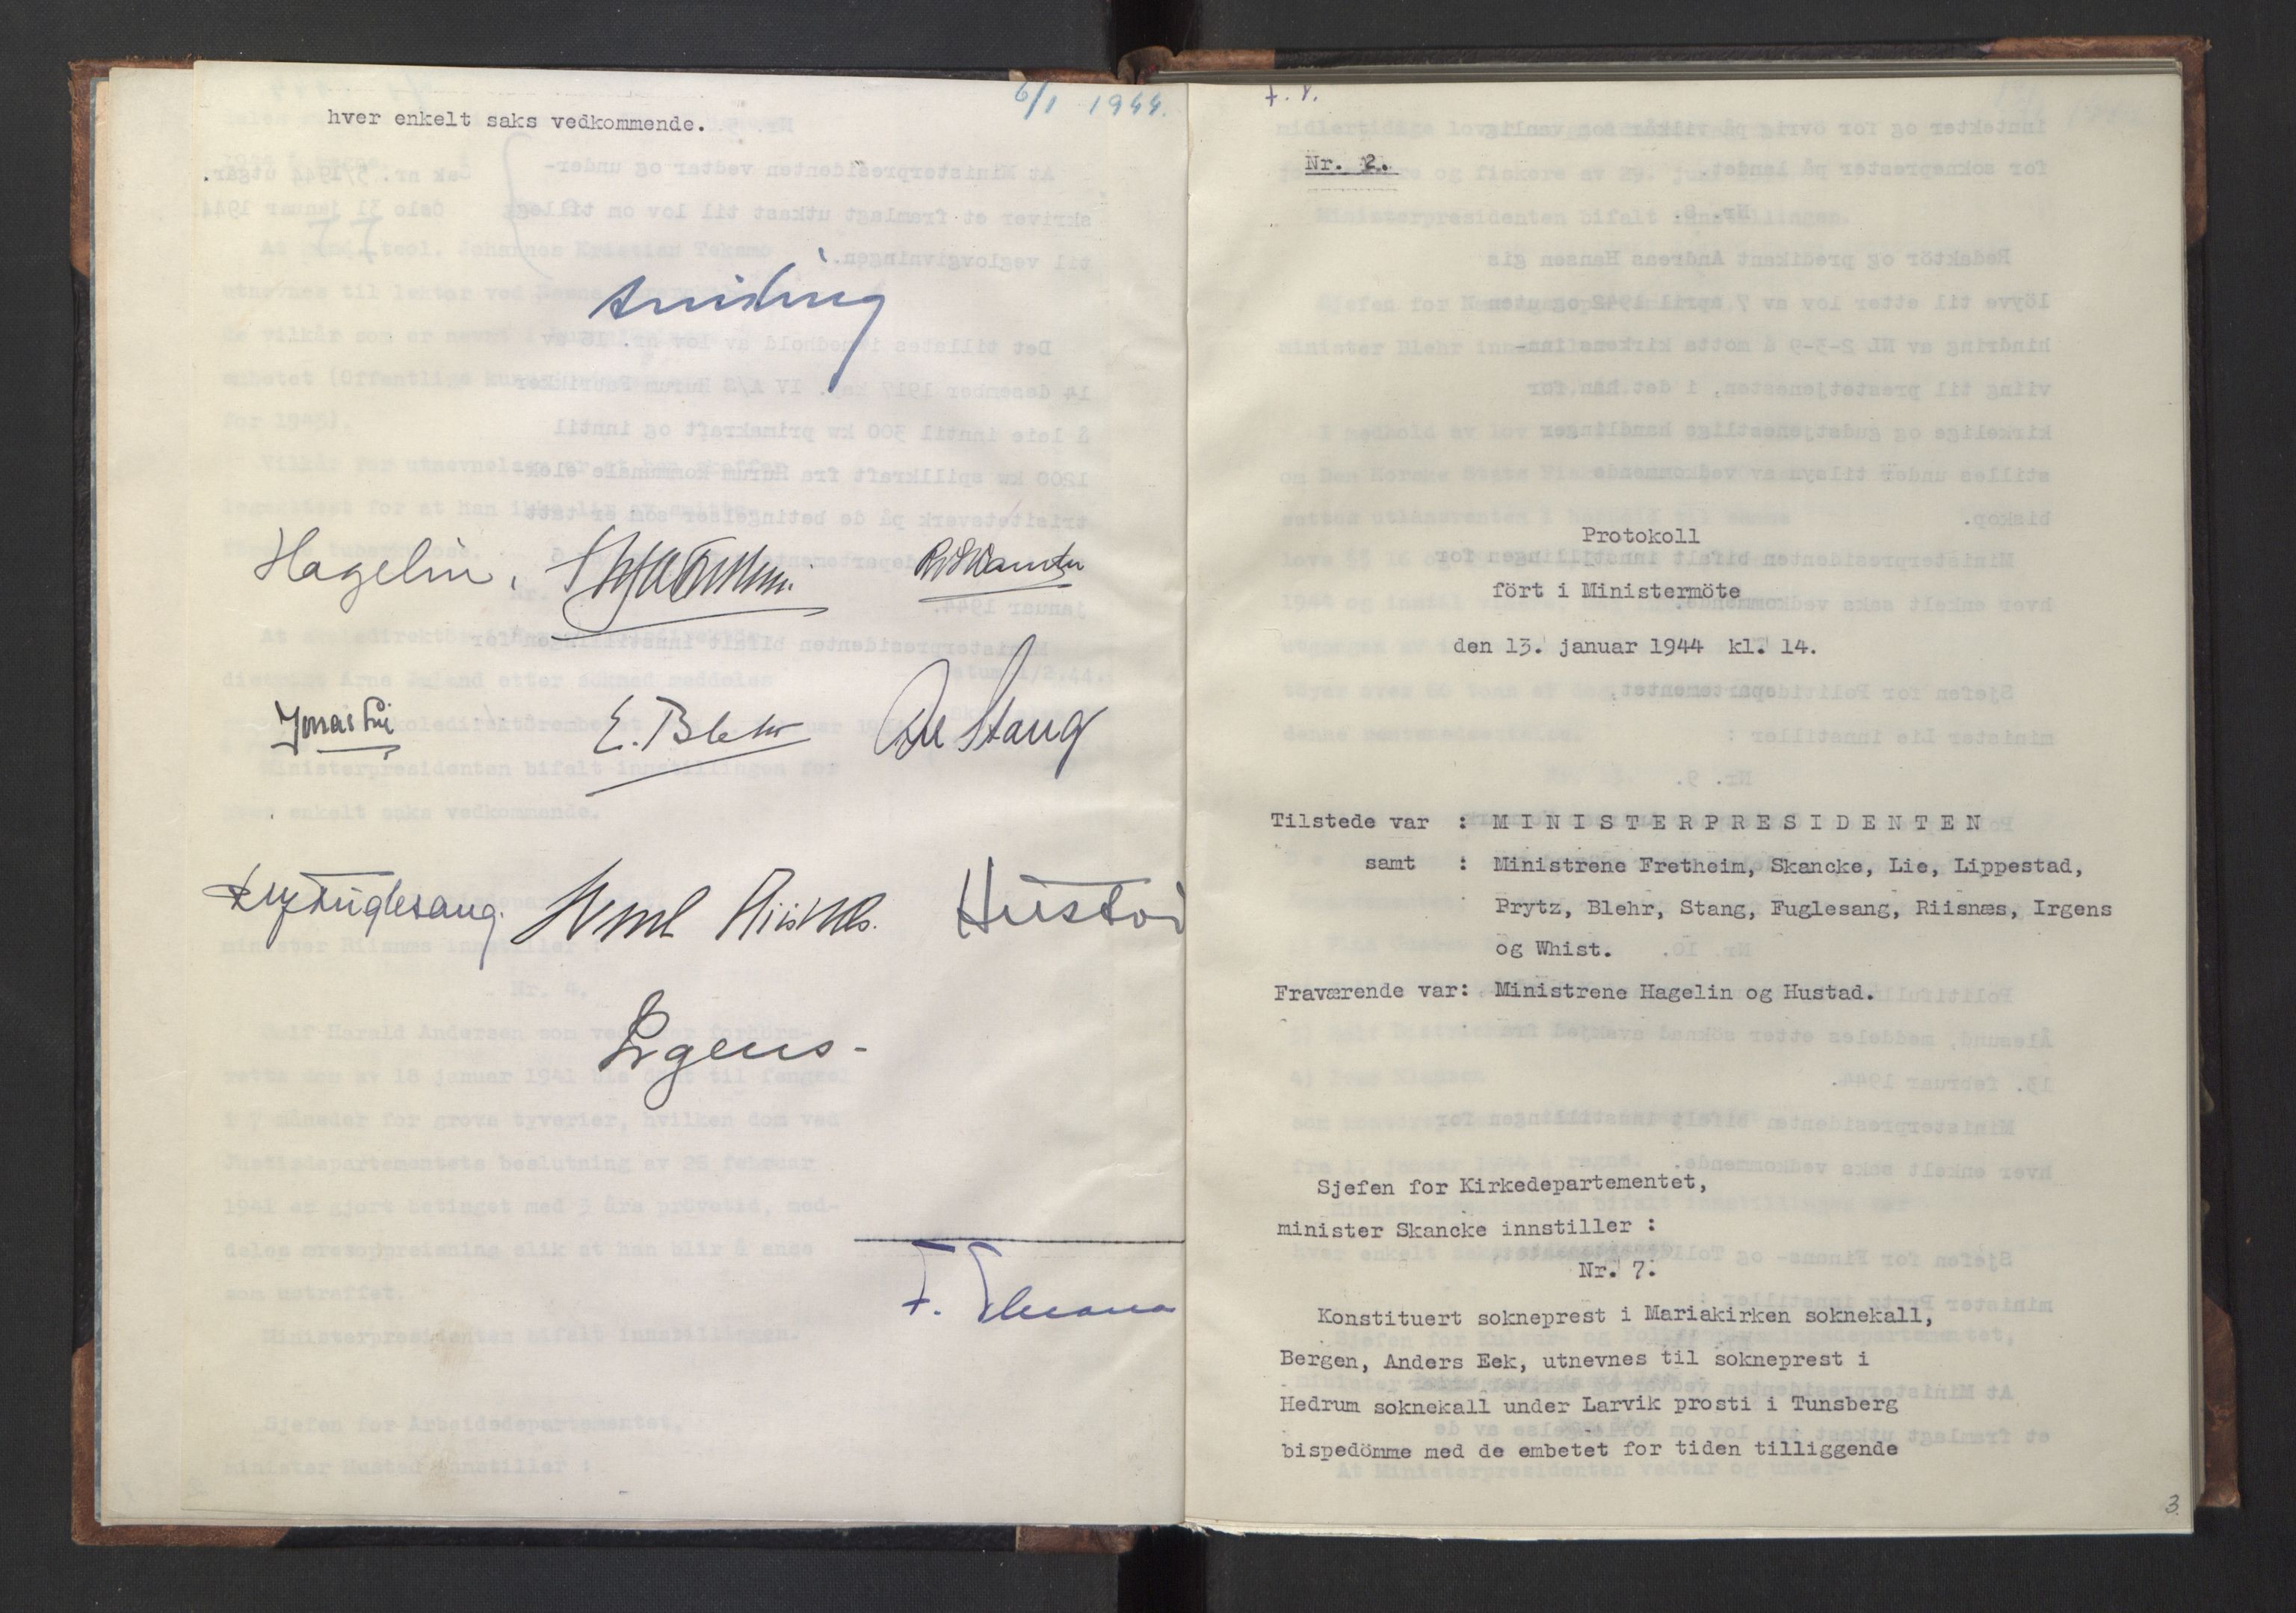 6/1 1944.
hver enkelt saks vedkommende.
Quisling
Hagelin.
R. Skancke
Jonas Lie
E. Blehr
Axel Stang
R. J. Fuglesang.
Sverre Riisnæs.
Hustad
Irgens-
Nr. 2.
Protokoll
fört i Ministermöte
den 13. januar 1944 kl. 14.
Tilstede var : MINISTERPRESIDENTEN
samt : Ministrene Fretheim, Skancke, Lie, Lippestad,
Prytz, Blehr, Stang, Fuglesang, Riisnæs, Irgens
og Whist.
Fraværende var: Ministrene Hagelin og Hustad.
Sjefen for Kirkedepartementet,
minister Skancke innstiller :
Nr. 7.
Konstituert sokneprest i Mariakirken soknekall,
Bergen, Anders Eek, utnevnes til sokneprest i
Hedrum soknekall under Larvik prosti i Tunsberg
bispedömme med de embetet for tiden tilliggende
3.